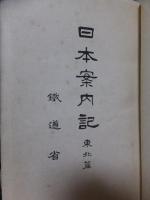 日本案内記
東北篇
鐵道省